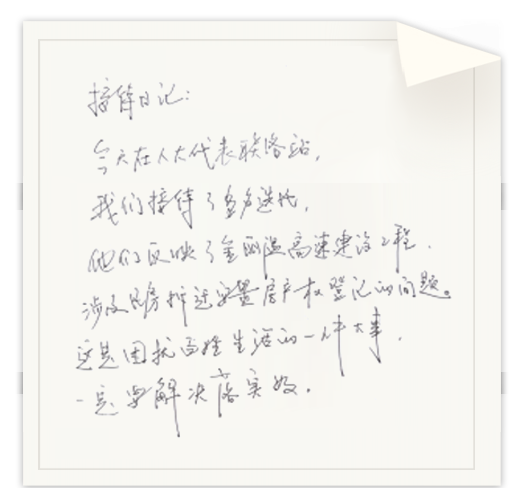 接待日记:
今天在人大代表联络站,
我们接待了多户选民,
他们反映了金丽温高速建设工程.
涉及民房拆迁安置房产权登记的问题。
这是困扰百姓生活的一件大事.
一定要解决落实好.